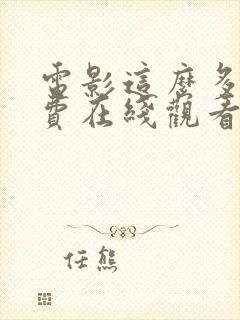 電影這麼多
費在綫觀看
任熊